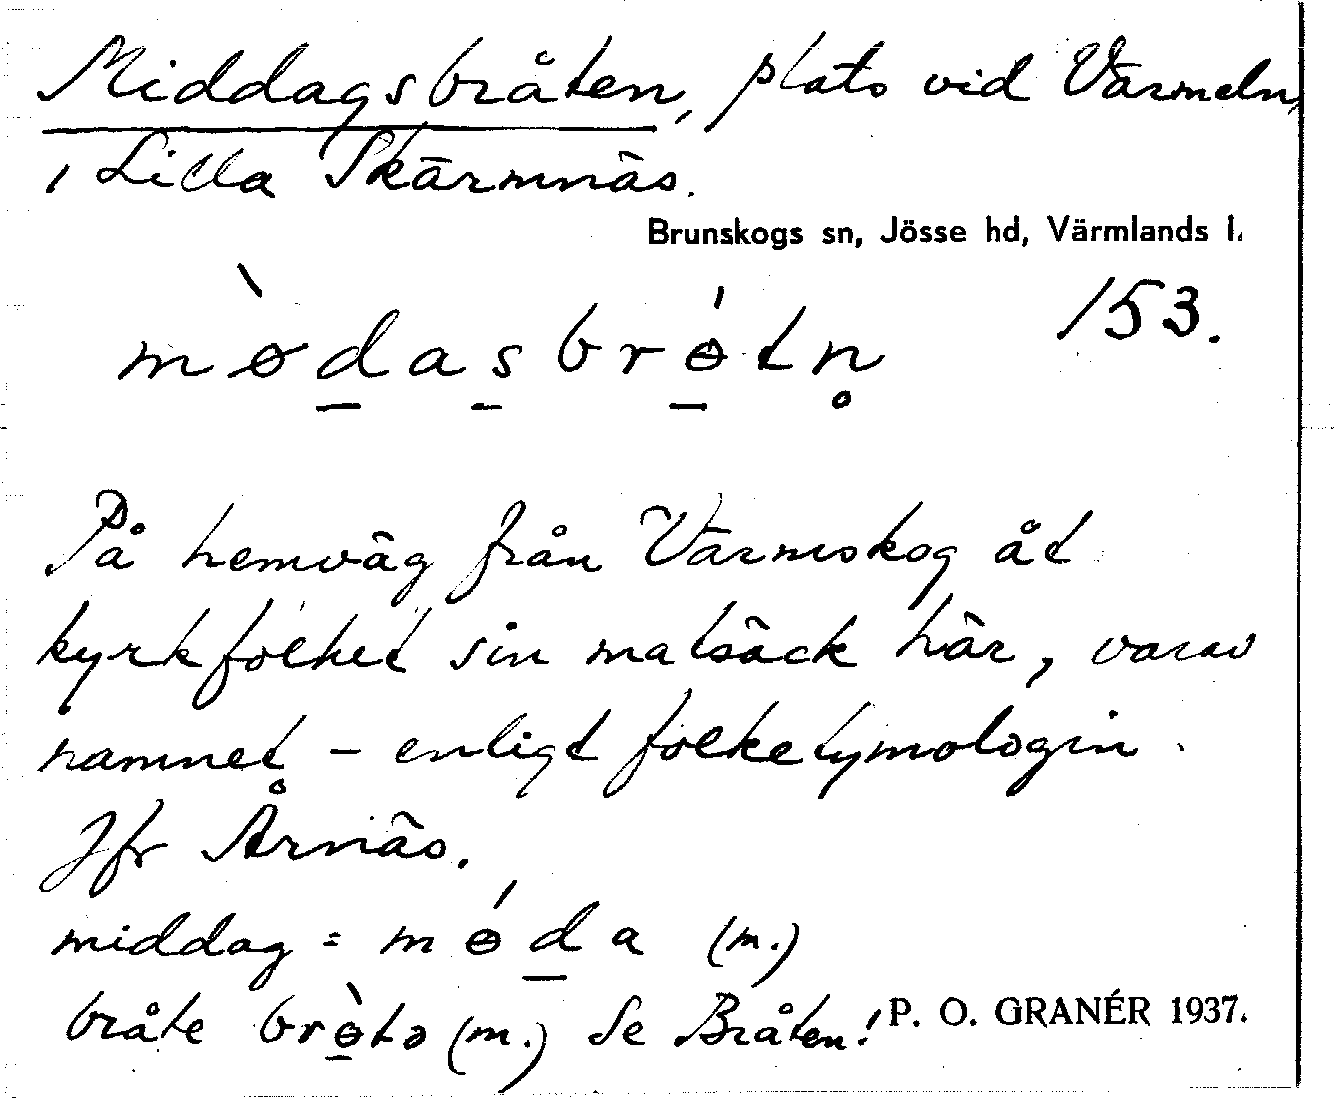 Middagsbråten, plats vid Värmeln,
i Lilla Skärmnäs.
Brunskogs sn, Jösse hd, Värmlands l.
153.
mø̀d̲as̲brɵ̲́tn̥
På hemväg från Värmskog åt
kyrkfolket sin matsäck här, varav
namnet – enligt folketymologin.
Jfr Årnäs.
middag = mɵ́d̲a (m.)
bråte brɵ̲̀tə (m.) Se Bråten!
P. O. GRANÉR 1937.